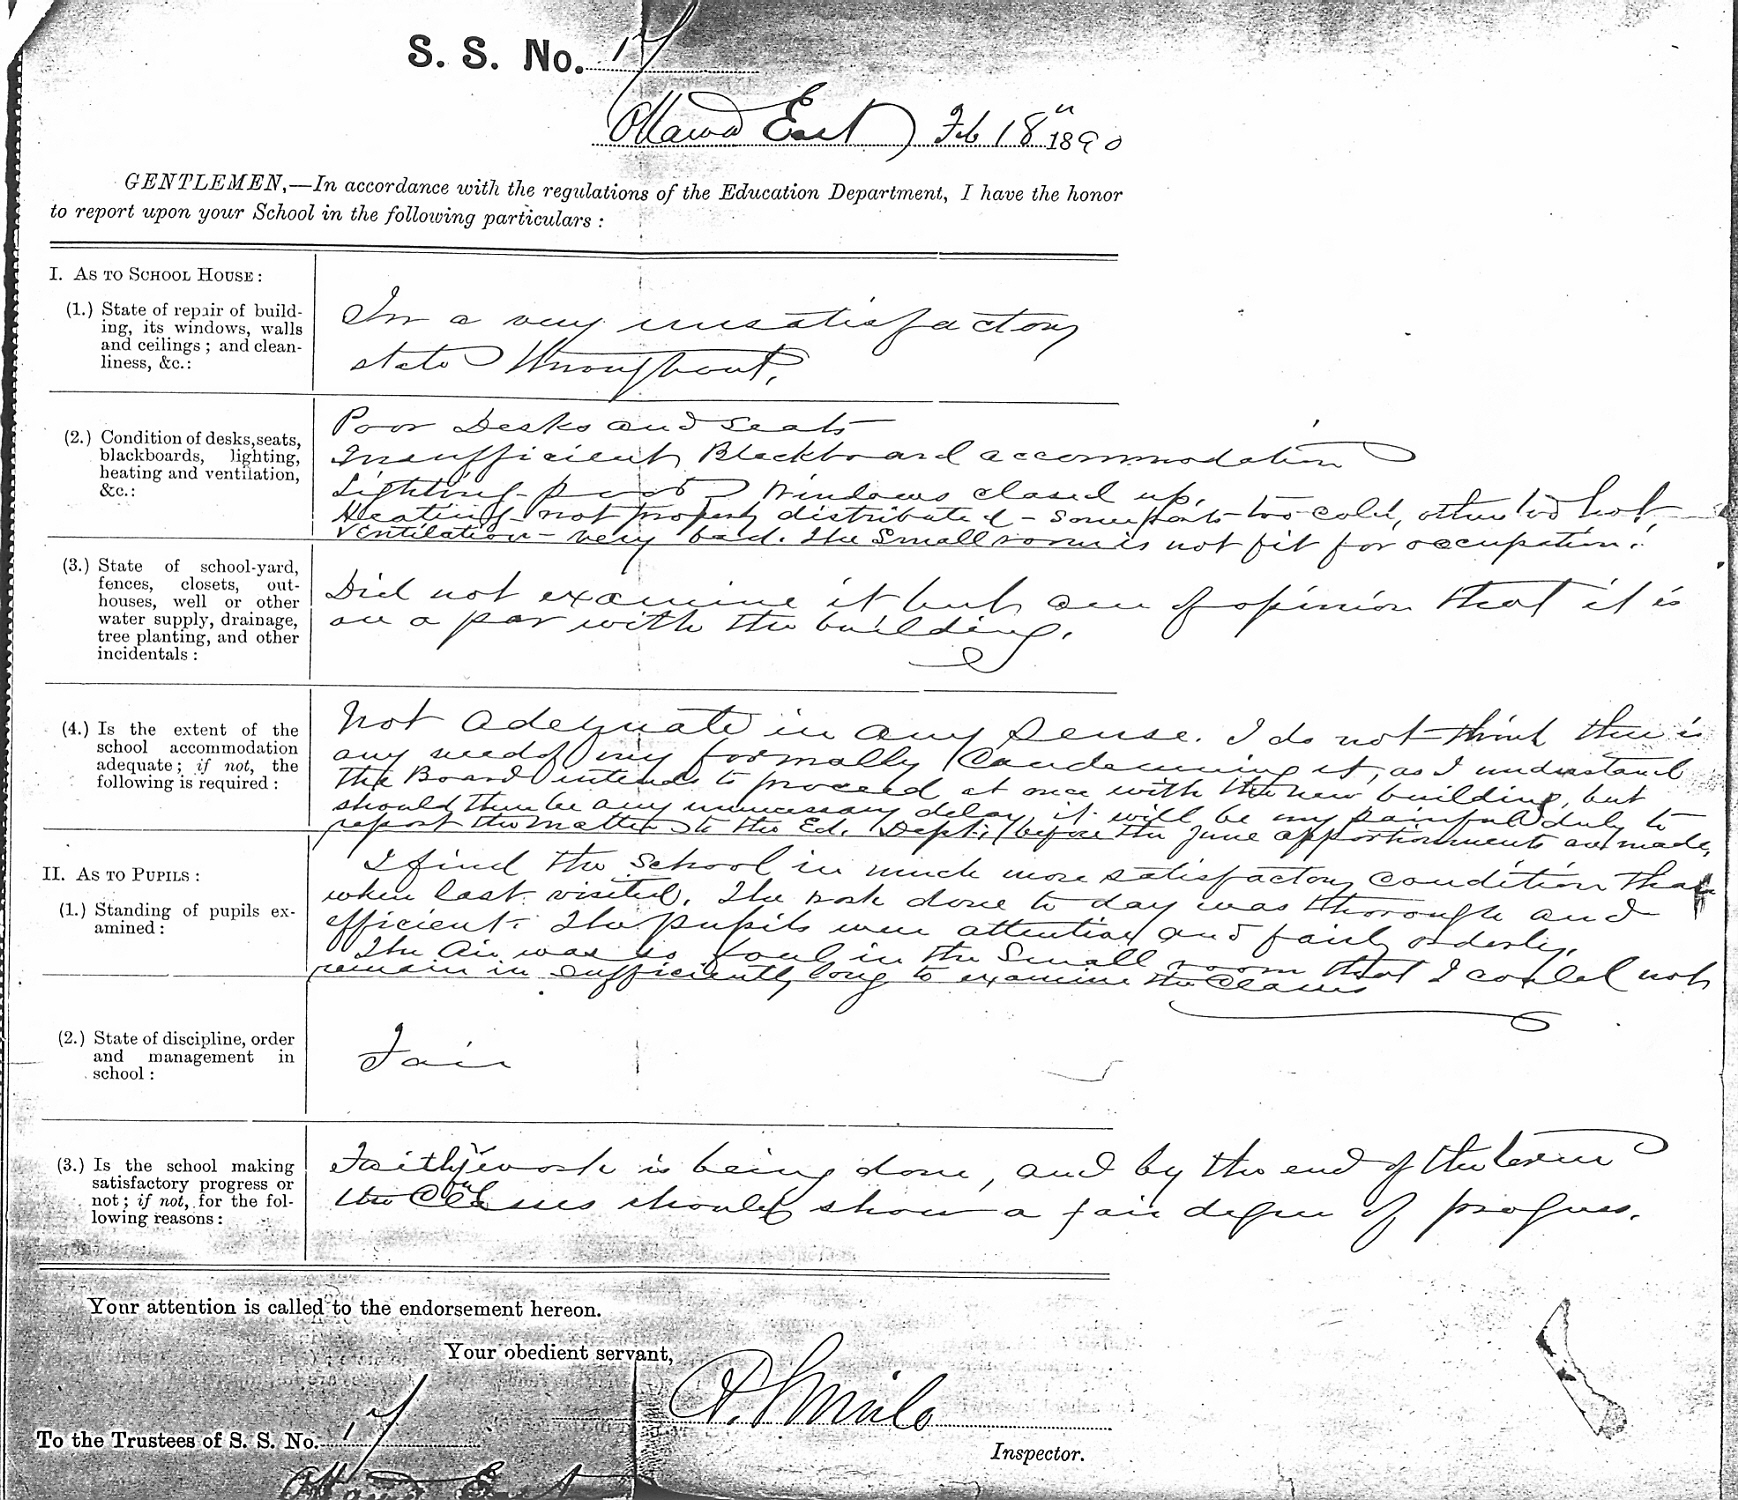 S. S. No. 17
Ottawa East Feb 18th 1890
GENTLEMEN,—In accordance with the regulations of the Education Department, I have the honor
to report upon your School in the following particulars :
I. AS TO SCHOOL HOUSE :
(1.) State of repair of build-
ing, its windows, walls
and ceilings ; and clean-
liness, &c.:
In a very unsatisfactory
state throughout.
(2.) Condition of desks, seats,
blackboards, lighting,
heating and ventilation,
&c.:
Poor Desks and seats
Insufficient Blackboard accommodation
Lighting - poor windows closed up.
Heating - not properly distributed - some parts too cold, others too hot,
Ventilation - very bad. The small room is not fit for occupation.
(3.) State of school-yard,
fences, closets, out-
houses, well or other
water supply, drainage,
tree planting, and other
incidentals :
Did not examine it but am of opinion that it is
on a par with the building.
(4.) Is the extent of the
school accommodation
adequate ; if not, the
following is required :
Not adequate in any sense. I do not think there is
any need of my formally Condemning it, as I understand
the Board intends to proceed at once with the new building, but
should there be any unnecessary delay it will be my painful duty to
report the matter to the Ed. Dept. before the June apportionments are made.
II. AS TO PUPILS :
(1.) Standing of pupils ex-
amined :
I find the School in much more satisfactory condition than
when last visited. The work done to day was thorough and
efficient. The pupils were attentive and fairly orderly.
The Air was so foul in the Small room that I could not
remain in sufficiently long to examine the Classes
(2.) State of discipline, order
and management in
school :
Fair
(3.) Is the school making
satisfactory progress or
not ; if not, for the fol-
lowing reasons :
Faithful work is being done, and by the end of the term
the Classes should show a fair degree of progress.
Your attention is called to the endorsement hereon.
Your obedient servant,
Inspector.
To the Trustees of S. S. No. 17
Ottawa East